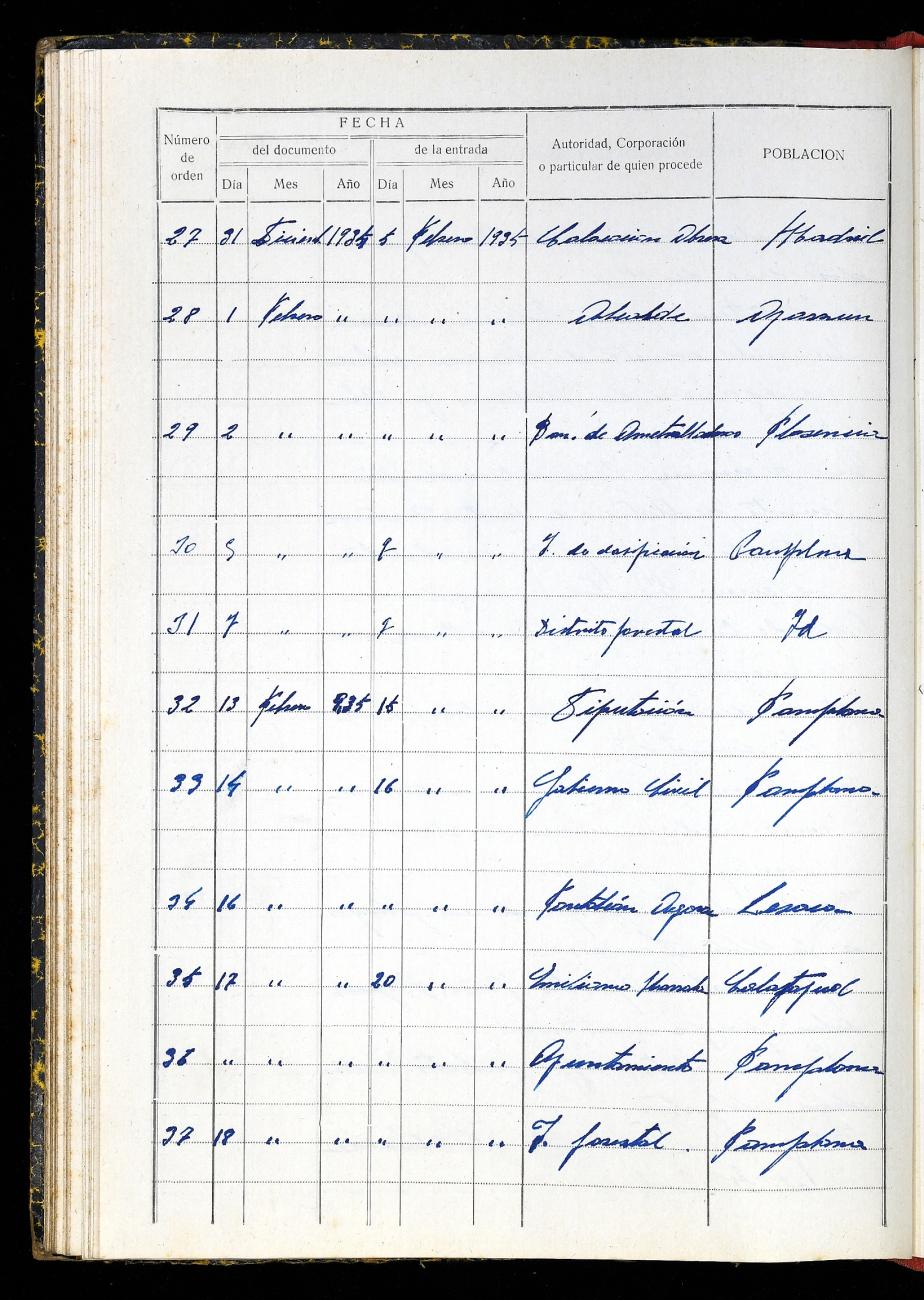 FECHA
Número de orden
del documento
de la entrada
Autoridad, Corporación o particular de quien procede
POBLACION
Día Mes Año Día Mes Año
27 31 1934 5 Febrero 1935 Madrid
28 1 Febrero " " " " Alcalde
29 2 " " " " " Bon. de Ametralladoras Plasencia
30 5 " " 9 " " J. de clasificación Pamplona
31 7 " " 9 " " Distrito forestal Id
32 13 Febrero 935 15 " " Diputación Pamplona
33 14 " " 16 " " Gobierno Civil Pamplona
34 16 " " " " " Lesaca
35 17 " " 20 " " Emiliano Calatayud
36 " " " " " " Ayuntamiento Pamplona
37 18 " " " " " J. forestal. Pamplona